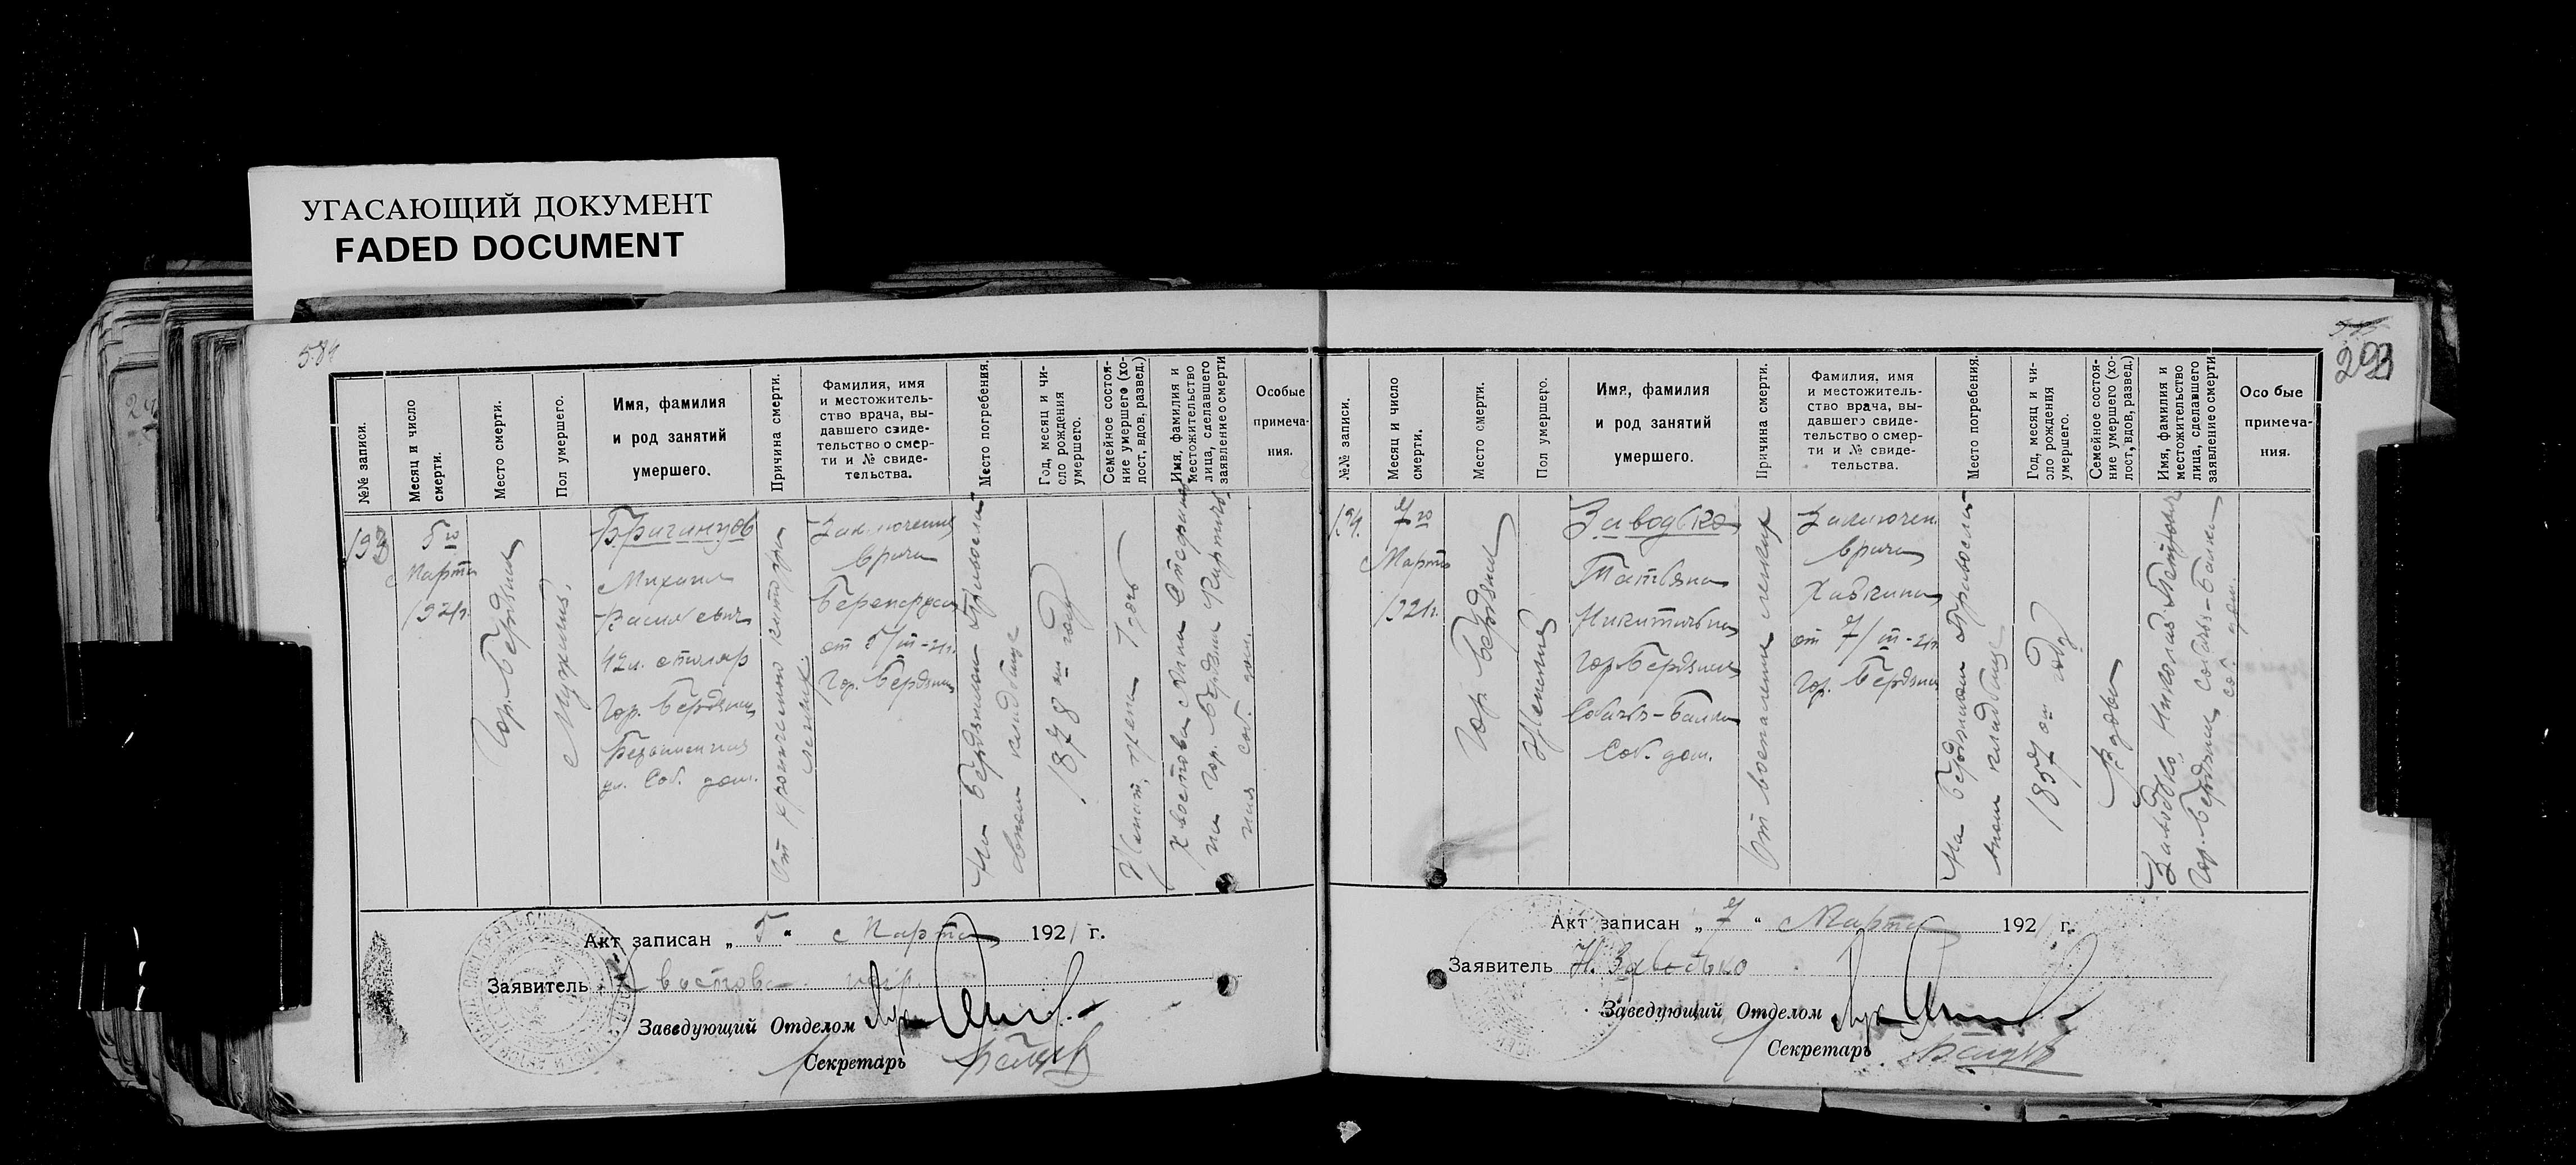 УГАСАЮЩИЙ ДОКУМЕНТ
FADED DOCUMENT
584
№№ записи.
Месяц и число
смерти.
Место смерти.
Пол умершего.
Имя, фамилия
и род занятий
умершего.
Причина смерти.
Фамилия, имя
и местожитель-
ство врача, вы-
давшего свиде-
тельство о смер-
ти и № свиде-
тельства.
Место погребения.
Год, месяц и чи-
сло рождения
умершего.
Семейное состоя-
ние умершего (хо-
лост, вдов, развед.)
Имя, фамилия и
местожительство
лица, сделавшего
заявление о смерти
Особые
примеча-
ния.
193
5го
Марта
1921г.
Гор. Бердянск
Мужчина.
Михаил
Васильевич
42л. столяр
Гор. Бердянск
ул. Соб. дом.
От хронического катарра
легких
Заключение
врача
от 5/III-21г.
Гор. Бердянск
На Бердянском Православ
вном кладбище
1878 го году
Женат,
Хвостова Анна Стефановна
Гор. Бердянск
соб. дом.
Акт записан „ 5 “ Марта 1921 г.
Заявитель Хвостова
Заведующий Отделом
Секретарь
293
№№ записи.
Месяц и число
смерти.
Место смерти.
Пол умершего.
Имя, фамилия
и род занятий
умершего.
Причина смерти.
Фамилия, имя
и местожитель-
ство врача, вы-
давшего свиде-
тельство о смер-
ти и № свиде-
тельства.
Место погребения.
Год, месяц и чи-
сло рождения
умершего.
Семейное состоя-
ние умершего (хо-
лост, вдов, развед.)
Имя, фамилия и
местожительство
лица, сделавшего
заявление о смерти
Особые
примеча-
ния.
194.
7го
Марта
1921г.
Гор. Бердянск
Заводько
Татьяна
Никитична
Гор. Бердянск
Собачья-Балка
Соб. дом.
От воспаления легких
Заключен.
врача
Хавкина
от 7/III-21г.
Гор. Бердянск
На Бердянском Православ
вном кладбище
1857 го году
Вдова
Заводько Николай Петрович
Гор. Бердянск, Собачья-Балка
соб. дом.
Акт записан „ 7 “ Марта 1921 г.
Заявитель Н. Заводько
Заведующий Отделом
Секретарь